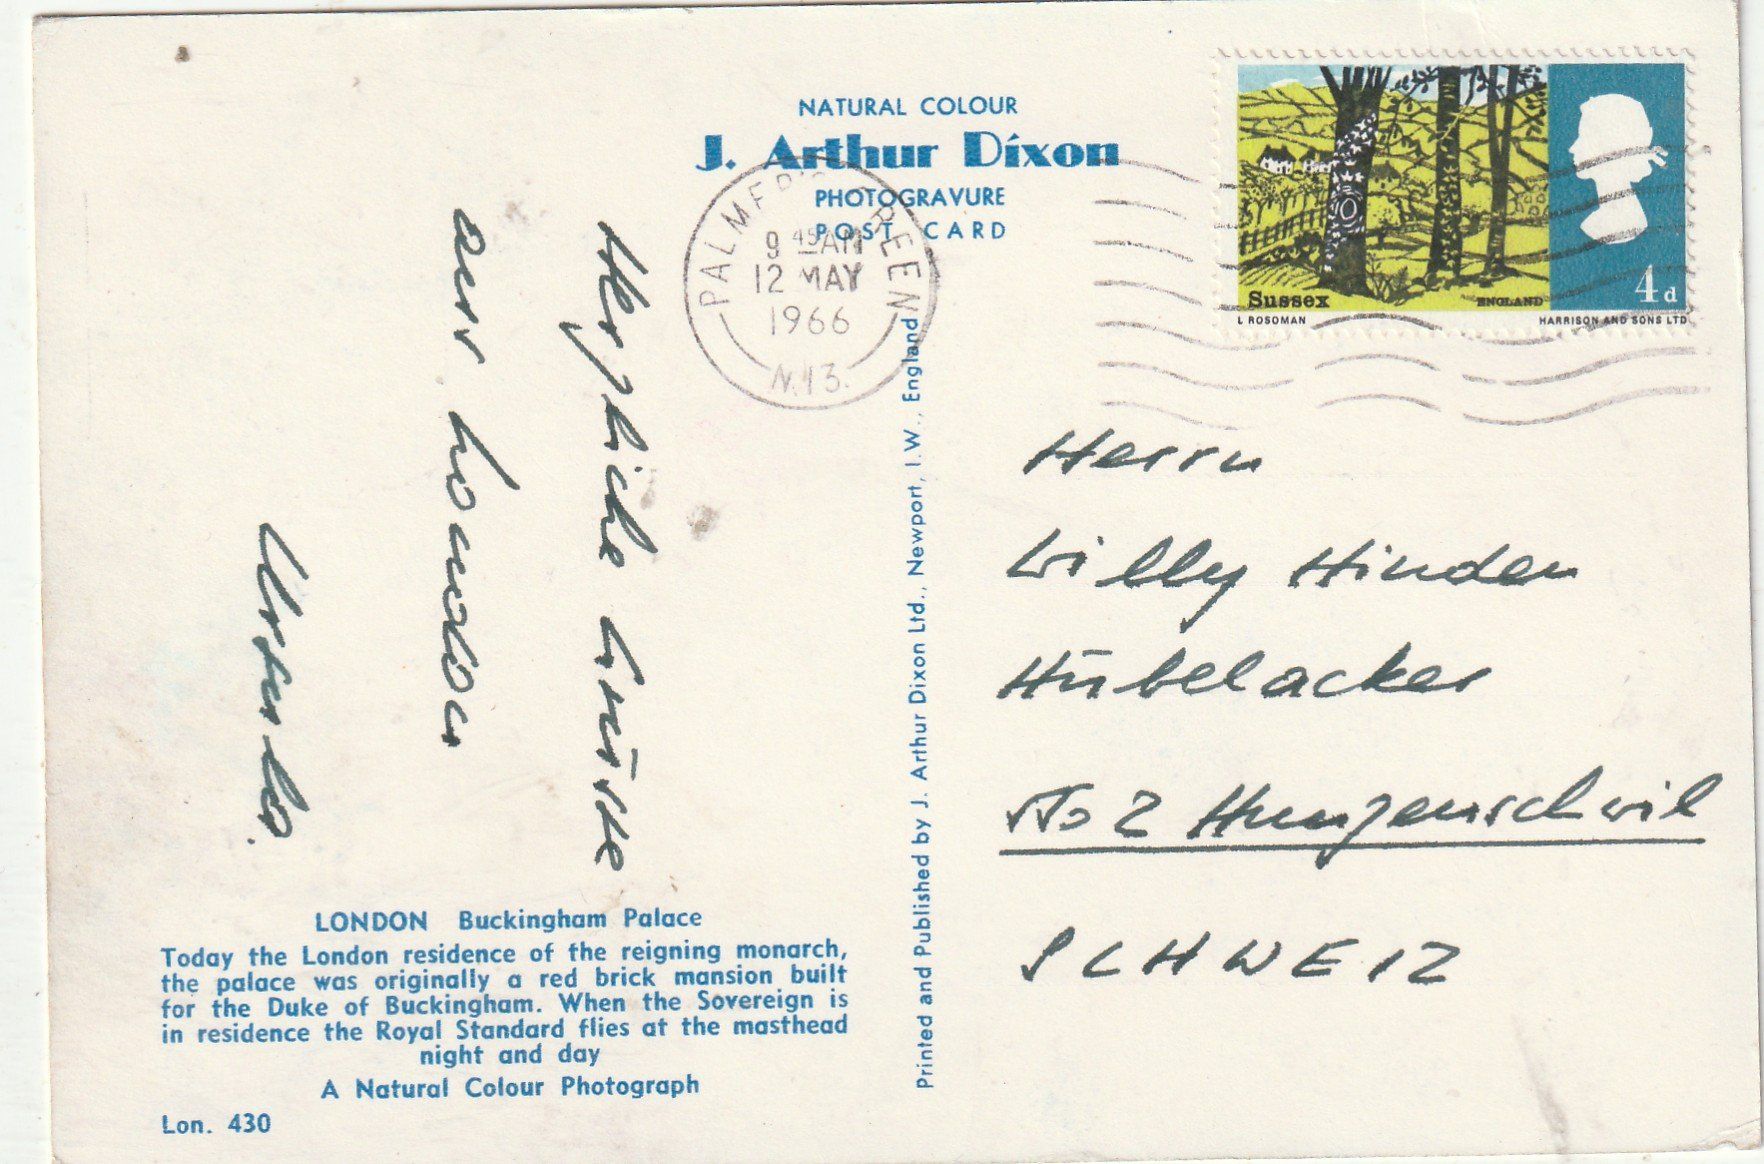 NATURAL COLOUR
J. Arthur Dixon
PHOTOGRAVURE
POST CARD
PALMERS GREEN
9 45 AM
12 MAY
1966
N.13.
Sussex
ENGLAND
4d
L ROSOMAN
HARRISON AND SONS LTD
Herzliche Grüsse
aus London
Ursula.
Herrn
Willy Hinden
Hübelacker
Hunzenschwil
SCHWEIZ
Printed and Published by J. Arthur Dixon Ltd., Newport, I.W., England
LONDON Buckingham Palace
Today the London residence of the reigning monarch,
the palace was originally a red brick mansion built
for the Duke of Buckingham. When the Sovereign is
in residence the Royal Standard flies at the masthead
night and day
A Natural Colour Photograph
Lon. 430